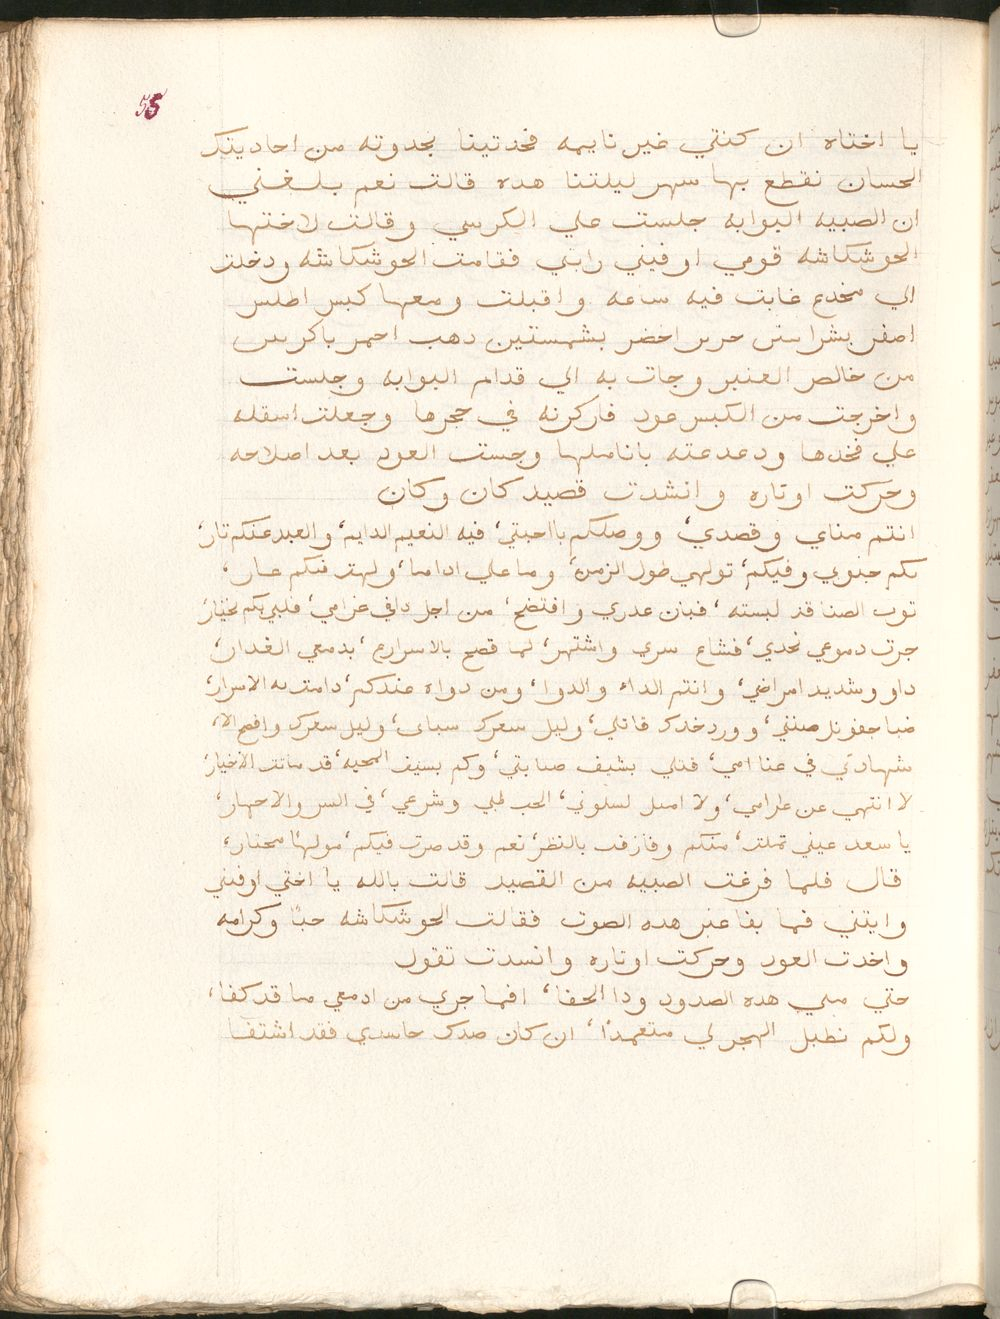 55
يا اختاه ان كنتي غير نايمه فحدتينا بحدوته من احاديتك
الحسان نقطع بها سهر ليلتنا هده قالت نعم بلغني
ان الصبيه البوابه جلست علي الكرسي وقالت لاختها
الحوشكاشه قومي اوفيني رايتي فقامت الحوشكاشه ودخلت
الي مخدع غابت فيه ساعه واقبلت ومعها كيس اطلس
اصفر بشراستين حرير اخضر بشمستين دهب احمر باكرتين
من خالص العنبر وجات به الي قدام البوابه وجلست
واخرجت من الكيس عود فاركزته في حجرها وجعلت اسفله
علي فخدها ودعدعته باناملها وجست العود بعد اصلاحه
وحركت اوتاره وانشدت قصيد كان وكان
انتم مناي وقصدي، ووصلكم يا احبتي، فيه النعيم الدايم، والعبد عنكم نار،
بكم جنوني وفيكم، تولهي طول الزمن، وما علي اداما، ولهت فيكم عار،
توب الضنا قد لبسته، فبان عدري وافتضح، من اجل دا في غرامي، قلبي بكم يختار،
جرت دموعي بخدي، فشاع سري واشتهر، لما فضح بالاسرار، بدمعي الغدار،
داو وشديد امراضي، وانتم الداء والدوا، ومن دواه عندكم، دامت به الاسرار،
ضيا جفونك ضنني، وورد خدك قاتلي، وليل شعرك سباني، وليل شعرك
في عنا امي، قتلي بسيف صبابتي، وكم بسيف المحبه، قد ماتت الاخيار،
لا انتهي عن غرامي، ولا اميل لسلوتي، الحب طبي وشرعي، في السر والاجهار،
يا سعد عيني تملت، منكم وفازت بالنظر، نعم وقد صرت فيكم، مولها محتار،
قال فلما فرغت الصبيه من القصيد قالت بالله يا اختي اوفيني
وايتني فما بقا غير هده الصوت فقالت الحوشكاشه حبًا وكرامه
واخدت العود وحركت اوتاره وانشدت تقول
حتي متي هده الصدود ودا الجفا، افما جري من ادمعي ما قد كفا،
ولكم تطيل الهجر لي متعمدًا، ان كان صدك حاسدي فقد اشتفا